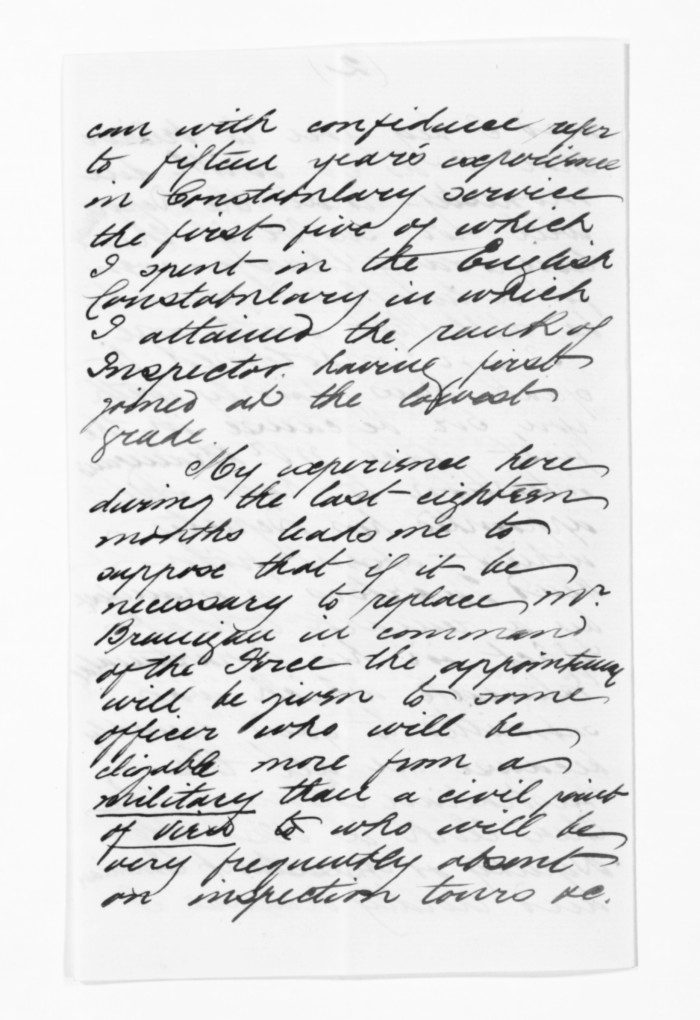 can with confidence refer
to fifteen year's experience
in Constabulary service
the first five of which
I spent in the English
Constabulary in which
I attained the rank of
Inspector having first
joined at the lowest
grade.
My experience here
during the last eighteen
months leads me to
suppose that if it be
necessary to replace Mr.
Branigan in command
of the Force the appointment
will be given to some
officer who will be
eligable more from a
military than a civil point
of view & who will be
very frequently absent
on inspection tours &c.